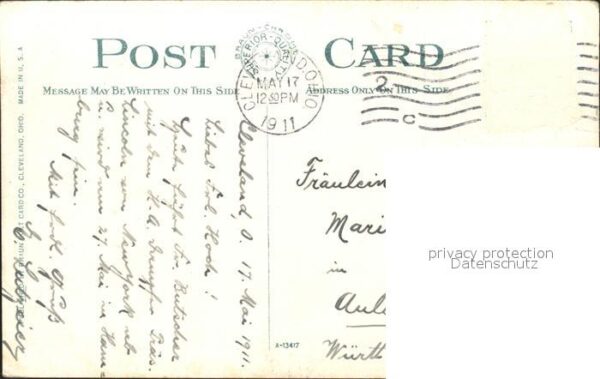 POST CARD
MESSAGE MAY BE WRITTEN ON THIS SIDE
ADDRESS ONLY ON THIS SIDE
SUPERIOR-QUALITY
CLEVELAND, OHIO.
MAY 17
12 30 PM
1911
2
C
MADE IN U.S.A.
POST CARD CO., CLEVELAND, OHIO.
Cleveland, O. 17. Mai 1911.
Liebes Frl. Koch!
Heute fährt Dr. Butscher
mit dem H. A. Dampfer Präs.
Lincoln von New York ab
u. wird am 27. Mai in Ham-
burg sein.
Mit frdl. Gruß
Fräulein
Mari
in
Aule
Württ
A-13417
privacy protection
Datenschutz